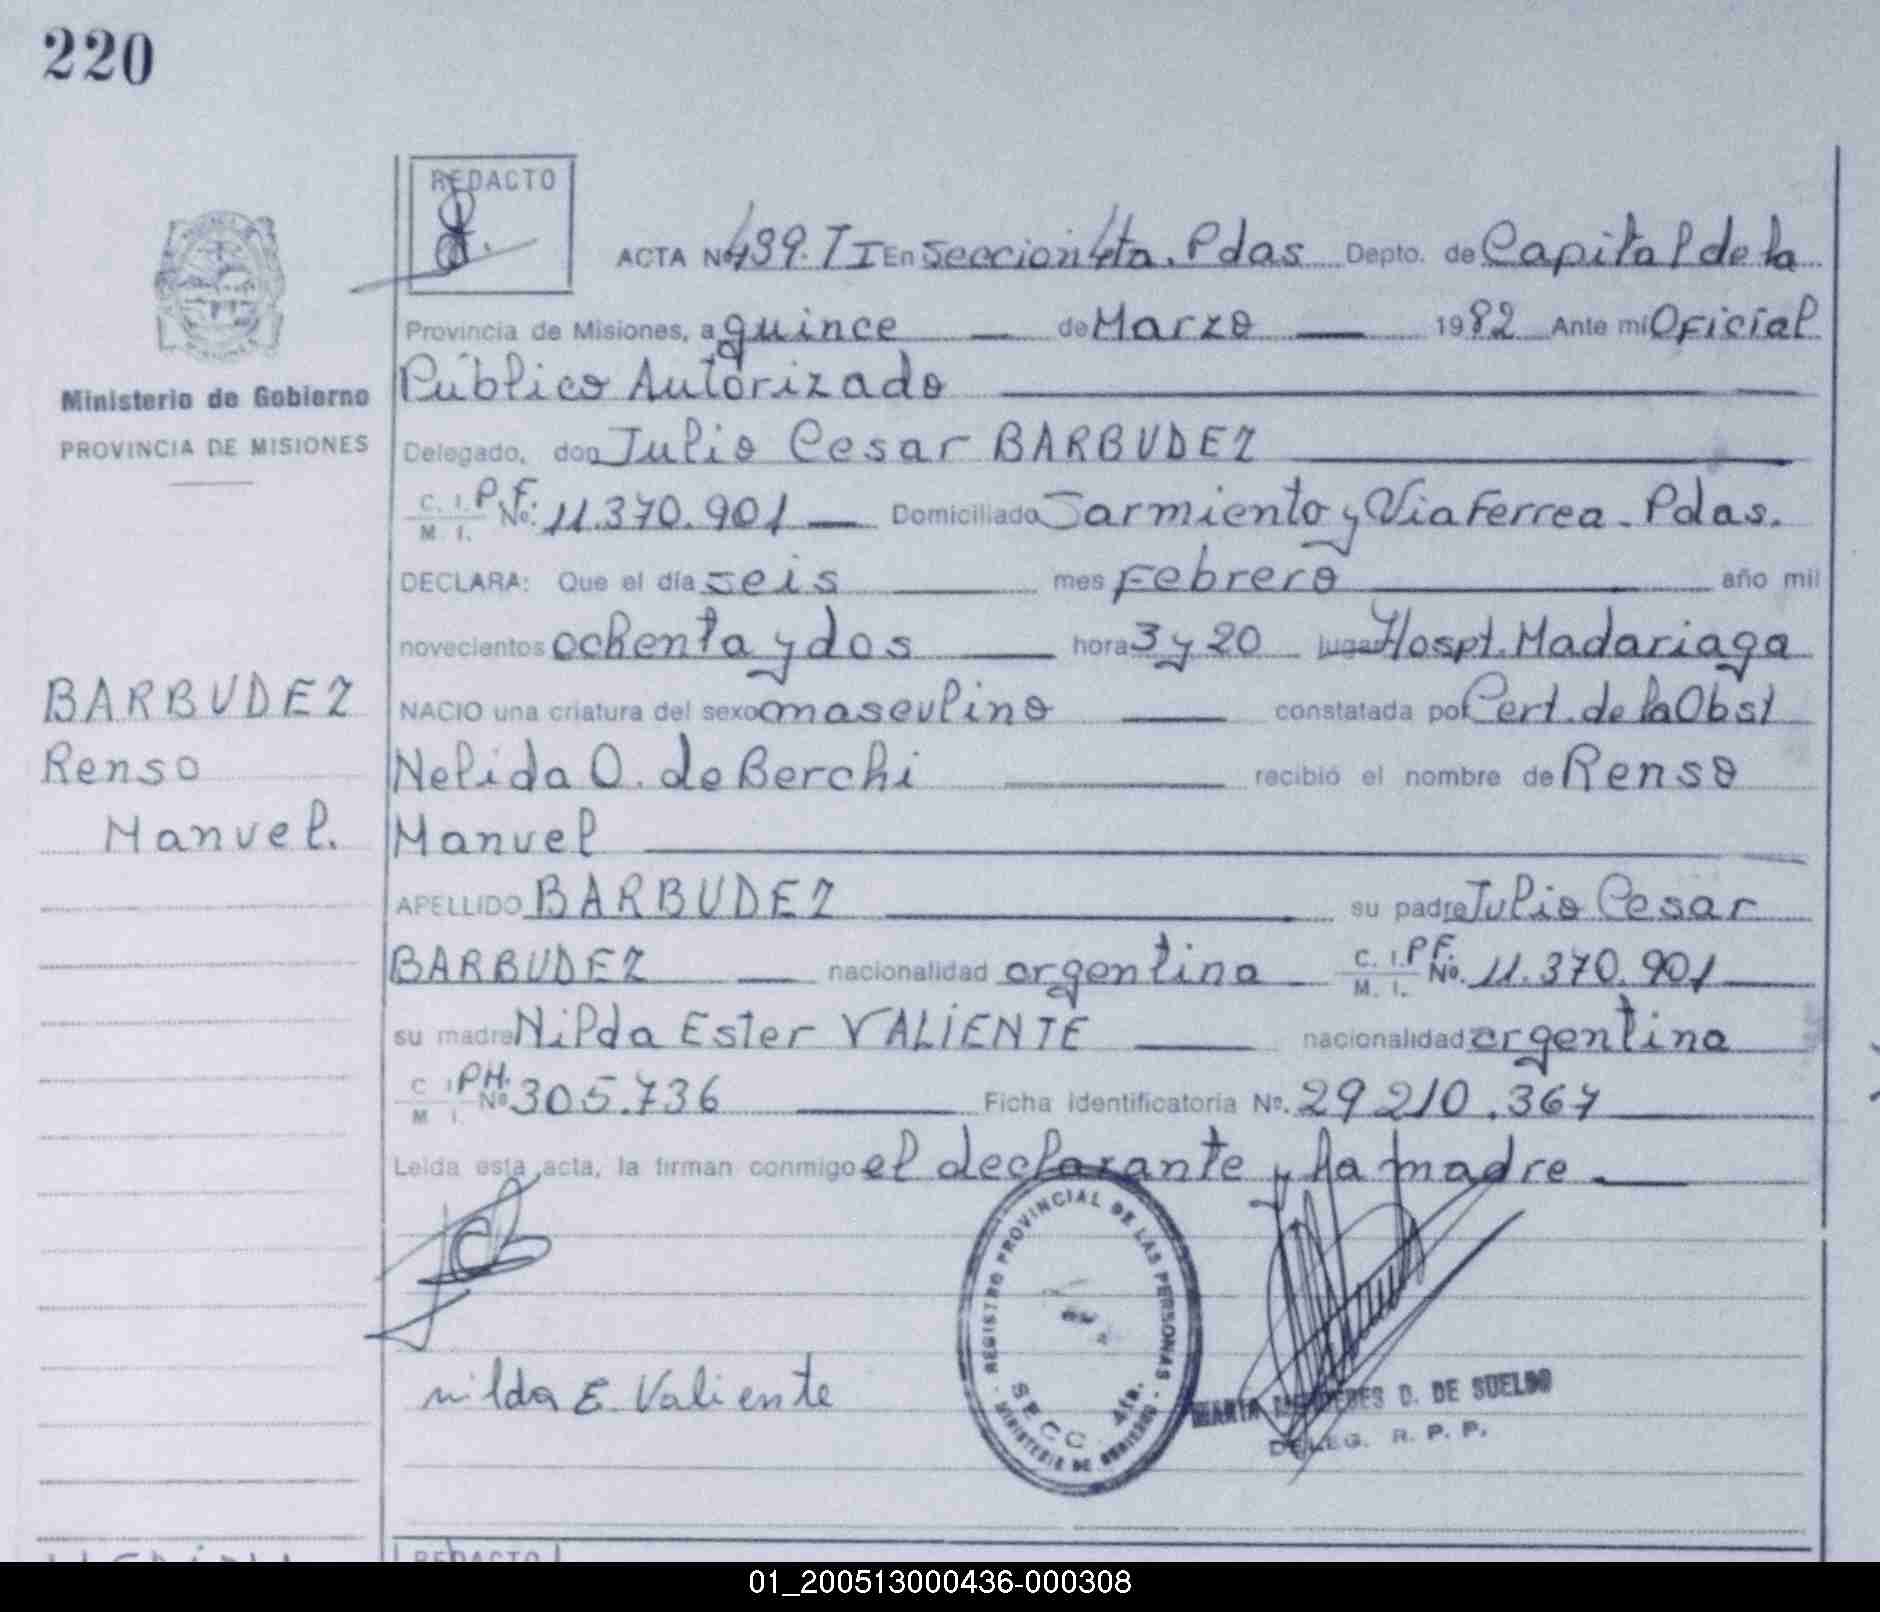 220
REDACTO
ACTA Nº 439. T I En Seccion 4ta. Pdas Depto. de Capital de la
Provincia de Misiones, a quince — de Marzo — 1982 Ante mi Oficial
Ministerio de Gobierno
PROVINCIA DE MISIONES
Público Autorizado
Delegado, don Julio Cesar BARBUDEZ
C. I. P.F.
M. I. Nº: 11.370.901 — Domiciliado Sarmiento y Via Ferrea - Pdas.
DECLARA: Que el día seis — mes Febrero — año mil
novecientos ochenta y dos — hora 3 y 20 lugar Hospt. Madariaga
BARBUDEZ
Renso
Manuel.
NACIO una criatura del sexo masculino — constatada por Cert. de la Obst
Nelida O. de Berchi — recibió el nombre de Renso
Manuel
APELLIDO BARBUDEZ — su padre Julio Cesar
BARBUDEZ — nacionalidad argentina C. I. P.F.
M. I. Nº. 11.370.901
su madre Nilda Ester VALIENTE — nacionalidad argentina
C I PH.
M I. Nº 305.736 — Ficha identificatoria Nº. 29210.367
Leida esta acta, la firman conmigo el declarante y la madre —
nilda E. Valiente
REGISTRO PROVINCIAL DE LAS PERSONAS
SECC 4ta.
MINISTERIO DE GOBIERNO
MARIA MERCEDES D. DE SUELDO
DELEG. R. P. P.
REDACTO
01_200513000436-000308